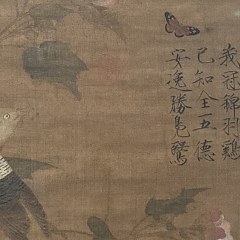 峨冠錦羽雞
已知全五德
安逸勝鳧鷖